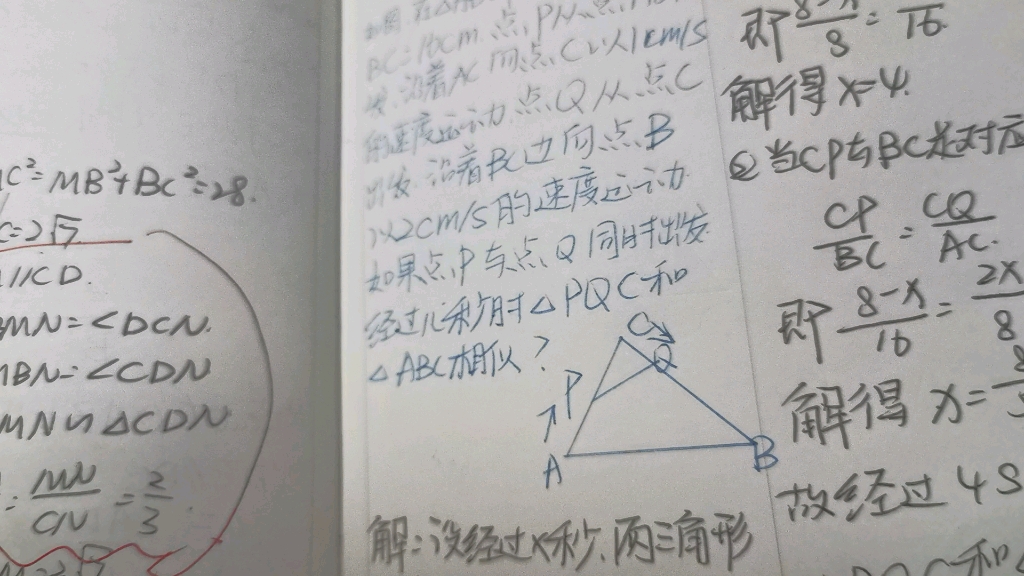 C²=MB²+BC²=28.
C=2√7
//CD.
MN=∠DCN.
BN=∠CDN
MN∽△CDN
MN/CN=2/3.
BC=16cm.点P从点
沿着AC向点C以1cm/s
的速度运动.点Q从点C
出发.沿着BC边向点B
以2cm/s的速度运动.
如果点P与点Q同时出发
经过几秒时△PQC和
△ABC相似?
C
Q
P
A
B
解:设经过x秒,两三角形
即(8-x)/8=/16
解得x=4.
②当CP与BC是对应
CP/BC=CQ/AC.
即(8-x)/16=2x/8
解得x=
故经过4s